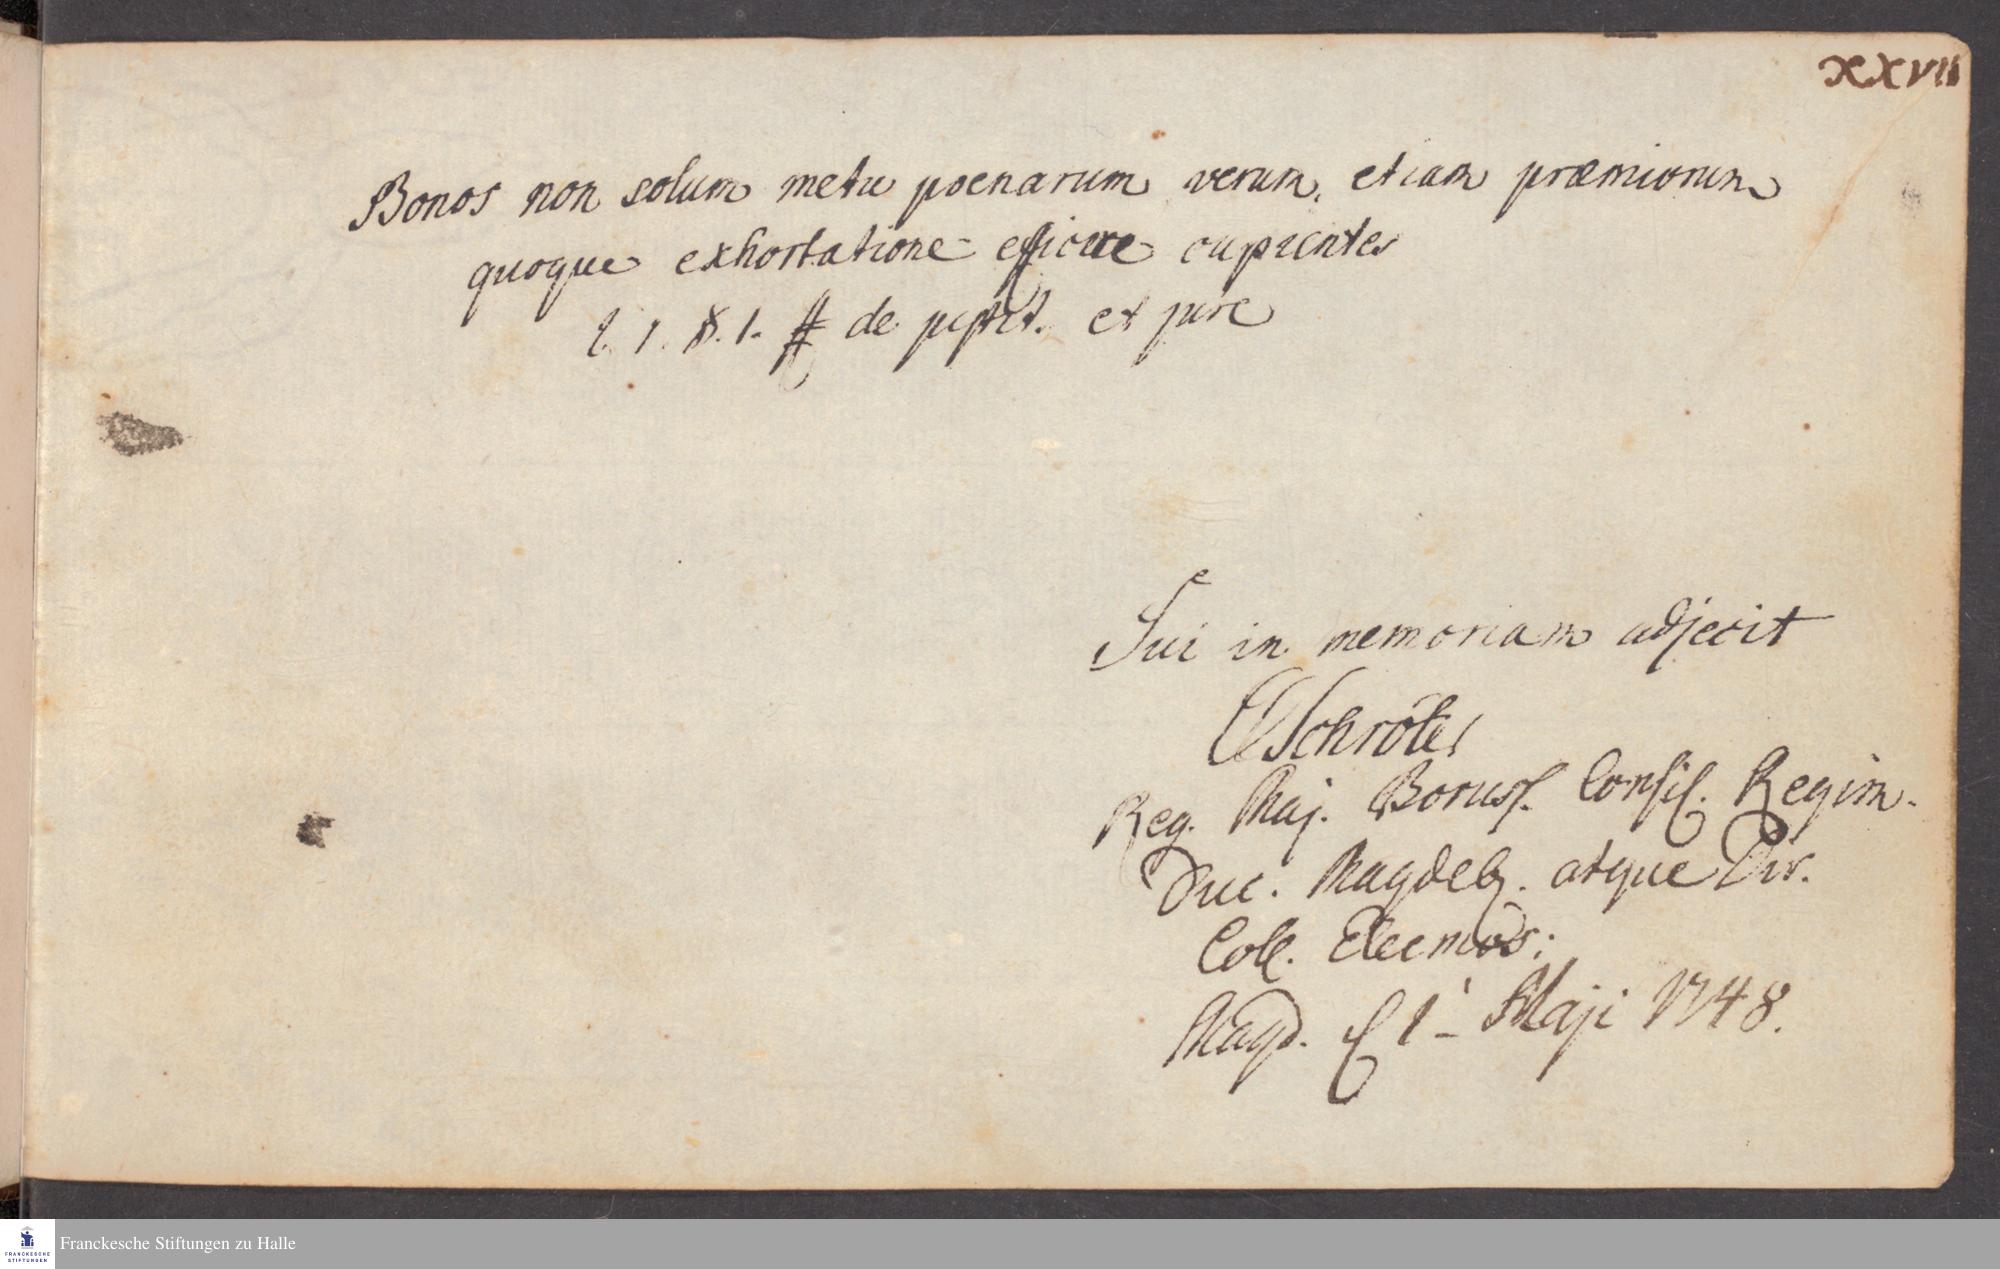 XXVII
Bonos non solum metu poenarum verum, etiam præmiorum
quoque exhortatione efficere cupientes
l. 1. §. 1. ff de justit. et jure
Sui in memoriam adjecit
Schröter
Reg. Maj. Boruss. Consil. Regim.
Duc. Magdeb. atque Dir.
Coll. Eleemos:
Magd. 1 Maji 1748.
FRANCKESCHE
STIFTUNGEN
Franckesche Stiftungen zu Halle